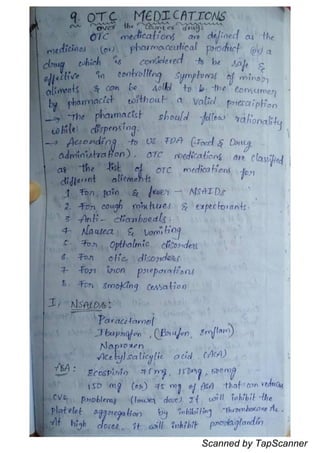 9. OTC MEDICATIONS
over the counter drugs
OTC medications are defined as the
medicines (or) pharmaceutical product (or) a
drug which is considered to be safe &
effective in controlling symptoms of minor
aliments & can be sold to the consumer
by pharmacist without a valid prescription
→ The pharmacist should follow rationality
while dispensing.
→ According to US FDA (Food & Drug
administration). OTC medications are classified
as the list of OTC medications for
different aliements
1. For pain & fever - NSAIDs
2. For cough mixtures & expectorants.
3. Anti-diarrhoeals.
4. Nausea & vomiting
5. For Opthalmic disorders
6. For otic disorders
7. For iron preparations
8. For smoking cessation
I. NSAIDs:
Paracetamol
Ibuprofen. (Brufen,
Naproxen
Acetylsalicylic acid. (ASA)
Ecospirin 75mg, 150mg,
150 mg (or) 75 mg of ASA that can reduces
CVS problems (lower dose). It will inhibit the
platelet aggregation by inhibiting Thromboxane A2.
At high doses, it will inhibit prostaglandin
Scanned by TapScanner